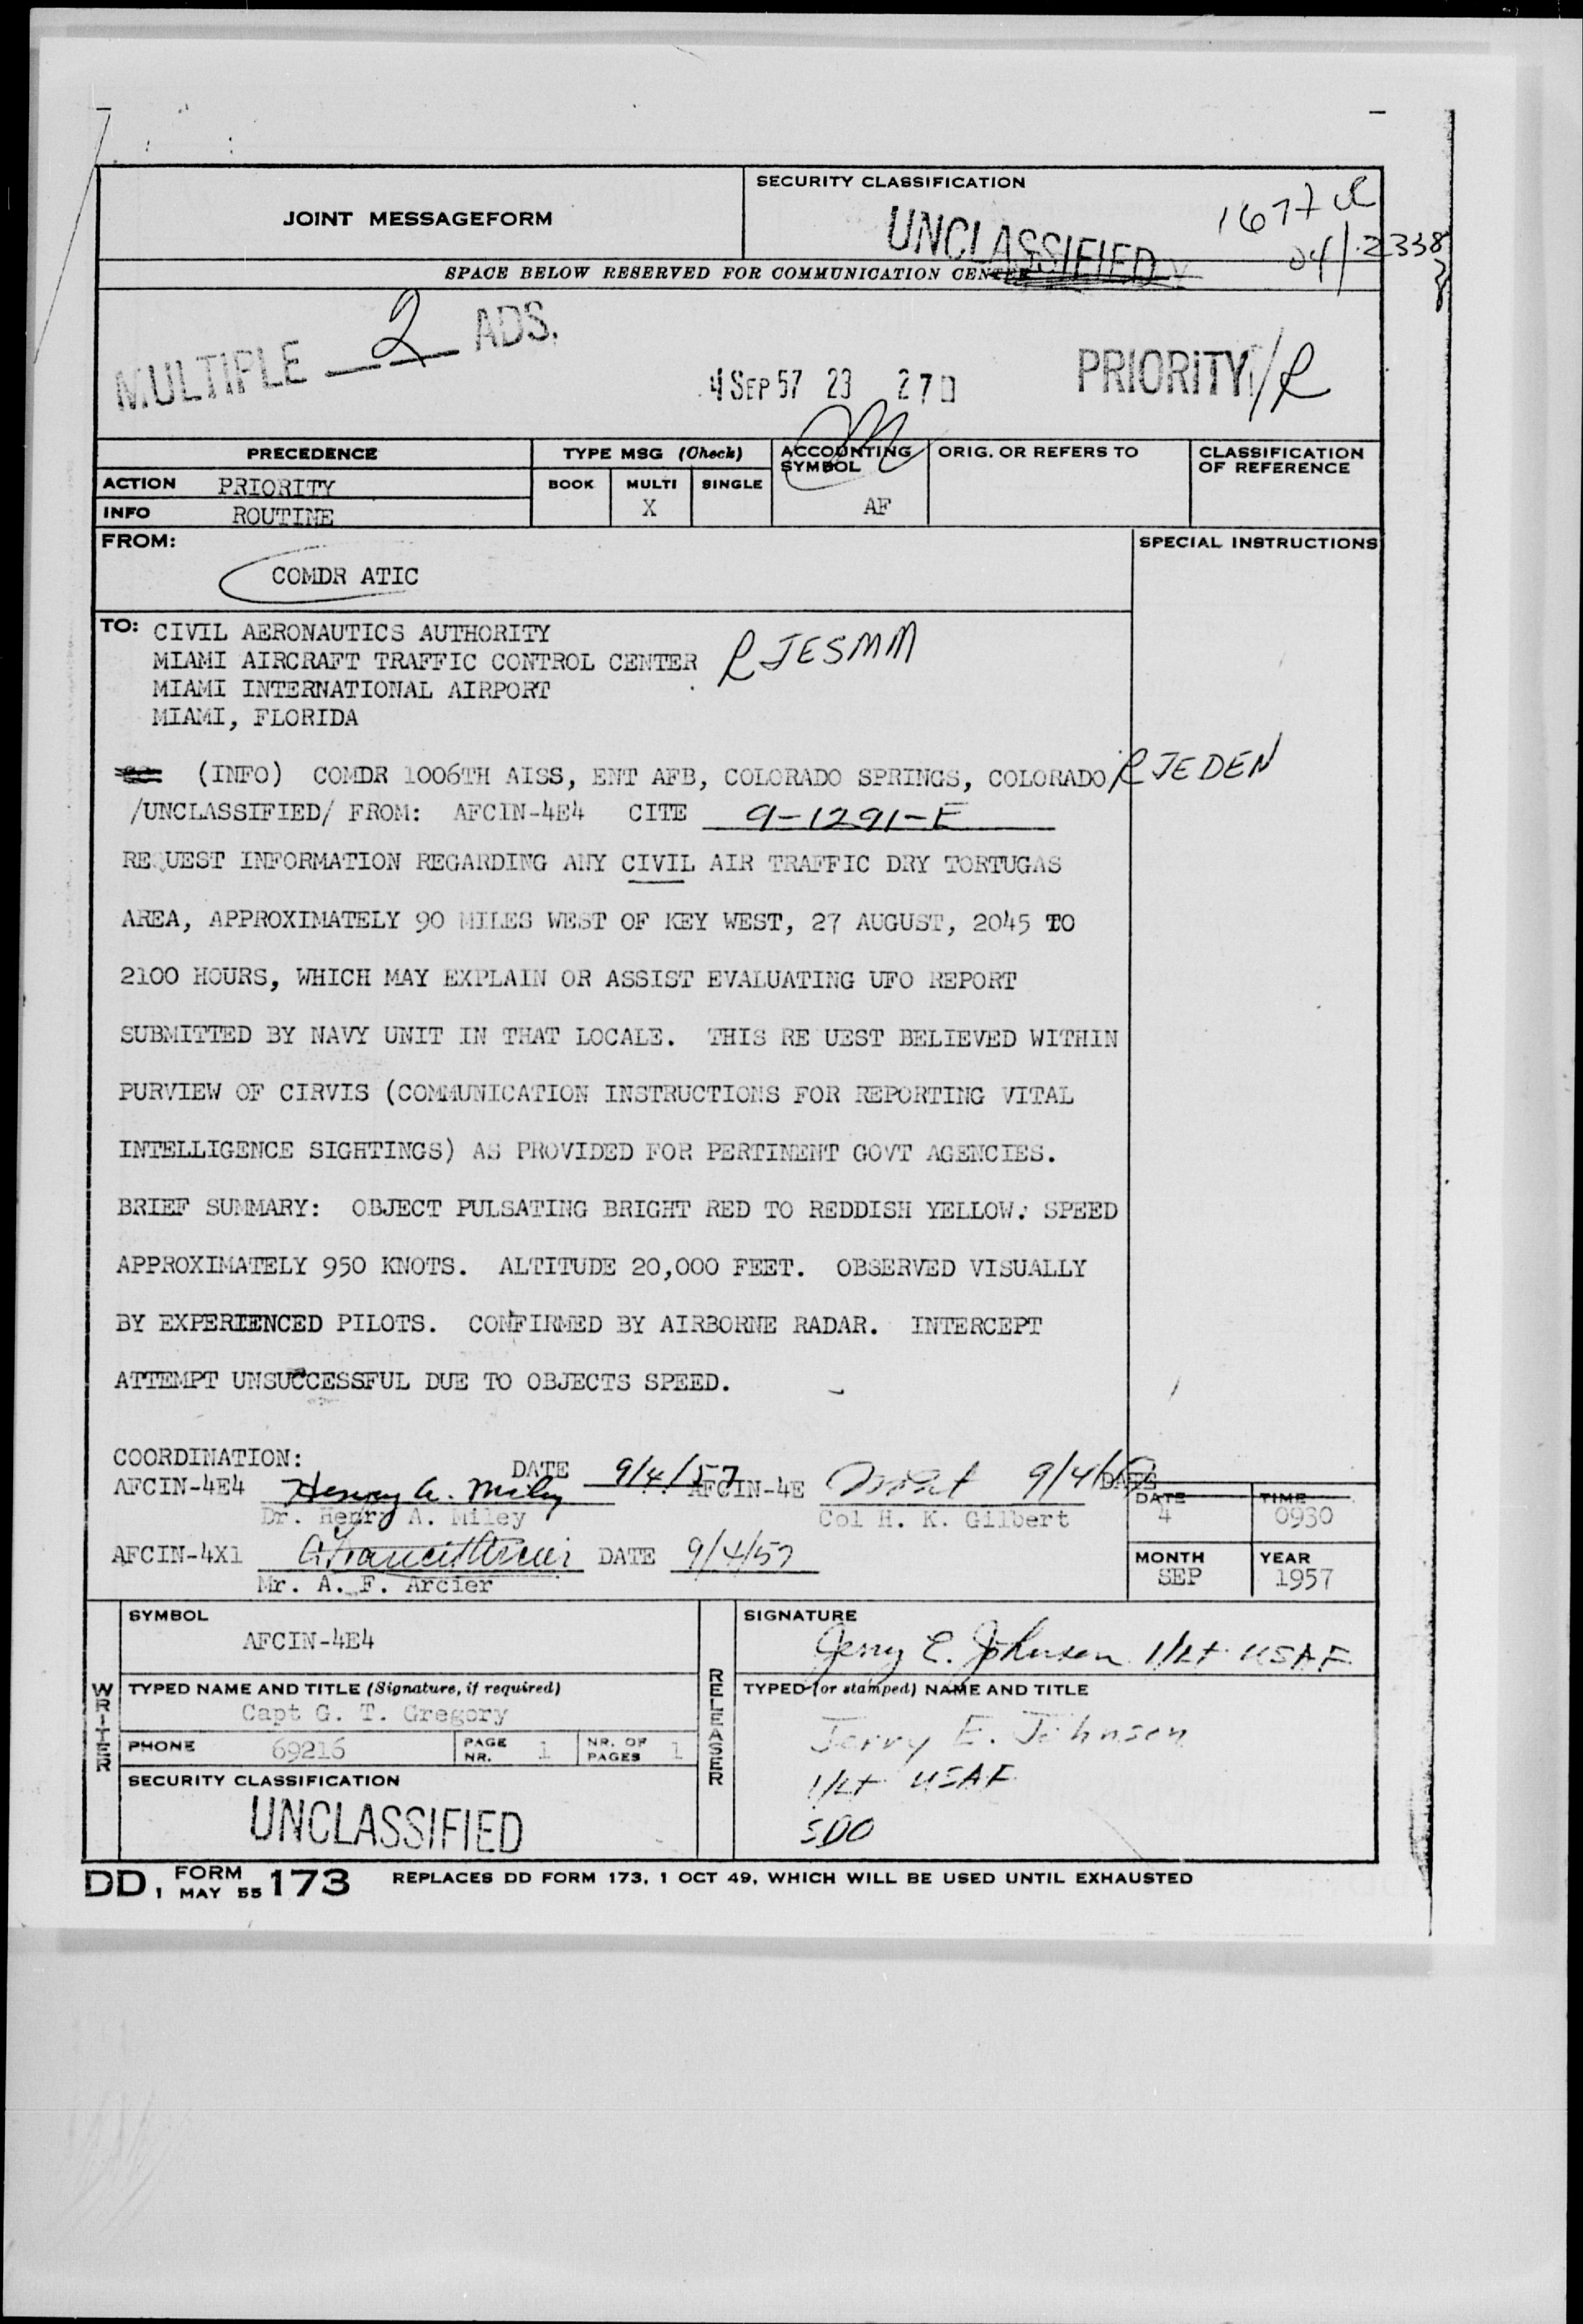 JOINT MESSAGEFORM
SECURITY CLASSIFICATION
UNCLASSIFIED
1677
04/2338
SPACE BELOW RESERVED FOR COMMUNICATION CENTER
MULTIPLE 2 ADS.
4 SEP 57 23 27
PRIORITY/R
PRECEDENCE
TYPE MSG (Check)
ACCOUNTING SYMBOL
ORIG. OR REFERS TO
CLASSIFICATION OF REFERENCE
ACTION PRIORITY
BOOK MULTI SINGLE
INFO ROUTINE
X
AF
FROM:
SPECIAL INSTRUCTIONS
COMDR ATIC
TO: CIVIL AERONAUTICS AUTHORITY
MIAMI AIRCRAFT TRAFFIC CONTROL CENTER RJESMM
MIAMI INTERNATIONAL AIRPORT
MIAMI, FLORIDA
(INFO) COMDR 1006TH AISS, ENT AFB, COLORADO SPRINGS, COLORADO RJEDEN
/UNCLASSIFIED/ FROM: AFCIN-4E4 CITE 9-1291-E
RE UEST INFORMATION REGARDING ANY CIVIL AIR TRAFFIC DRY TORTUGAS
AREA, APPROXIMATELY 90 MILES WEST OF KEY WEST, 27 AUGUST, 2045 TO
2100 HOURS, WHICH MAY EXPLAIN OR ASSIST EVALUATING UFO REPORT
SUBMITTED BY NAVY UNIT IN THAT LOCALE. THIS RE UEST BELIEVED WITHIN
PURVIEW OF CIRVIS (COMMUNICATION INSTRUCTIONS FOR REPORTING VITAL
INTELLIGENCE SIGHTINGS) AS PROVIDED FOR PERTINENT GOVT AGENCIES.
BRIEF SUMMARY: OBJECT PULSATING BRIGHT RED TO REDDISH YELLOW. SPEED
APPROXIMATELY 950 KNOTS. ALTITUDE 20,000 FEET. OBSERVED VISUALLY
BY EXPERIENCED PILOTS. CONFIRMED BY AIRBORNE RADAR. INTERCEPT
ATTEMPT UNSUCCESSFUL DUE TO OBJECTS SPEED.
COORDINATION:
AFCIN-4E4 Henry A. Miley DATE 9/4/57 AFCIN-4E 9/4/57 DATE
Dr. Henry A. Miley
Col H. K. Gilbert
DATE 4
TIME 0930
AFCIN-4X1 A. Francis Arcier DATE 9/4/57
Mr. A. F. Arcier
MONTH SEP
YEAR 1957
WRITER
SYMBOL
AFCIN-4E4
TYPED NAME AND TITLE (Signature, if required)
Capt G. T. Gregory
PHONE 69216
PAGE NR. 1
NR. OF PAGES 1
SECURITY CLASSIFICATION
UNCLASSIFIED
RELEASER
SIGNATURE
Jerry E. Johnson 1/Lt USAF
TYPED (or stamped) NAME AND TITLE
Jerry E. Johnson
1/Lt USAF
SDO
DD, FORM 1 MAY 55 173
REPLACES DD FORM 173, 1 OCT 49, WHICH WILL BE USED UNTIL EXHAUSTED